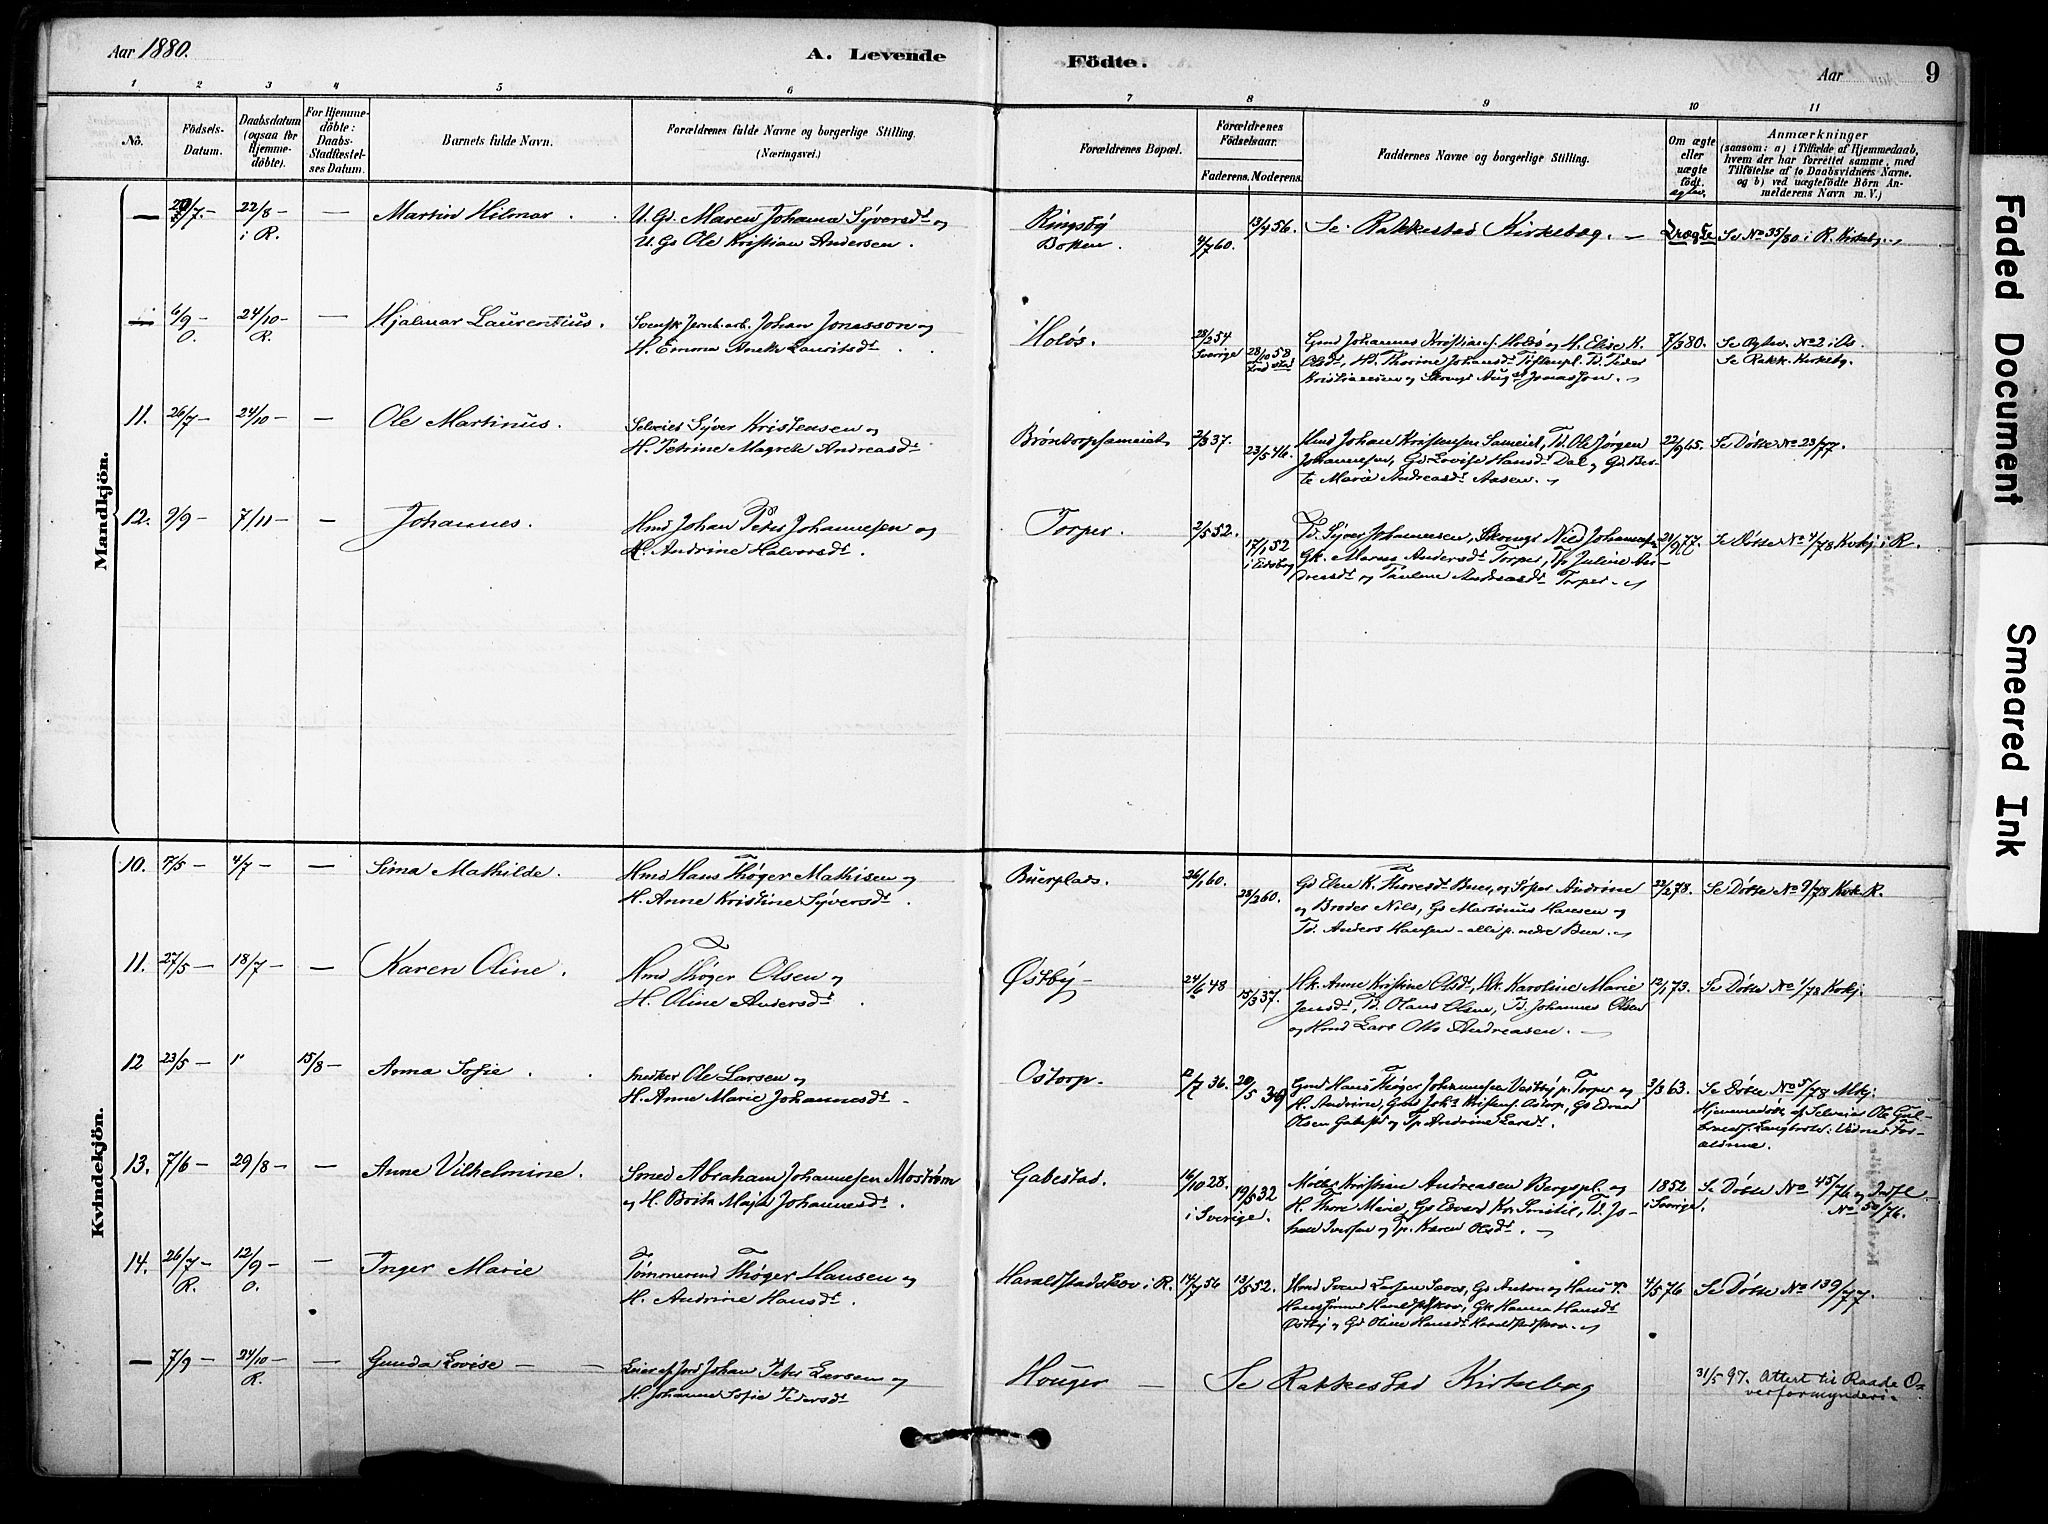 Aar 1880.
A. Levende Födte.
Aar
9
1 2 3 4 5 6 7 8 9 10 11
No.
Födsels-Datum.
Daabsdatum (ogsaa for Hjemmedöbte).
For Hjemmedöbte: Daabs-Stadfæstelses Datum.
Barnets fulde Navn.
Forældrenes fulde Navne og borgerlige Stilling.
(Næringsvei.)
Forældrenes Bopæl.
Forældrenes Födselsaar.
Faderens. Moderens.
Faddernes Navne og borgerlige Stilling.
Om ægte eller uægte födt.
Anmærkninger
(saasom: a) i Tilfælde af Hjemmedaab, hvem der har forrettet samme, med Tilföielse af to Daabsvidners Navne. og b) ved uægtefödte Börn Anmelderens Navn m. V.)
Mandkjön.
— 29/7 — 22/8 — i R. — Martin Hilmar. U. Gd. Maren Johana Syversdt og
U. Gs Ole Kristian Andersen.
Ringsby
Boken. 4/7 60. 13/4 56. Se Rakkestad Kirkebog. — Uægte Se No 35/80 i R. Kirkebg.
— 6/9 — O. 24/10 — R. — Hjalmar Laurentius. Svensk Jernb.arb. Johan Jonasson og
H. Emma Anette Lauritsdt.
Holøs. 28/2 54 Sverige 28/10 58 Fredrikstad Gmd Johannes Kristians. Holøs og H. Elise K.
Olsdt, Hd. Thorine Johansdt Toftenpl. Td. Peder
Kristiansen og Skrængs Augst Jonasson. 7/3 80. Se Ægtev. No 2 i Os.
Se Rakk. Kirkebg.
11. 26/7 — 24/10 — — Ole Martinus. Selveier Syver Kristensen og
H. Petrine Magrete Andreasdt
Brøntorpsameiet 2/3 37. 23/5 46. Hmd Johan Kristensen Sameiet, Td. Ole Jørgen
Johannesen, Gd. Lovise Hansdt Dal og Gd. Ber-
te Marie Andreasdt Aasen. 22/9 65. Se Döbte No 23/77.
12. 9/9 — 7/11 — — Johannes. Hmd Johan Peter Johannesen og
H. Andrine Halvorsdt.
Torper. 2/5 52. 17/1 52 i Eidsberg Td. Syver Johannesen, Skrengs Nils Johannesen
Gk. Maren Andersdt Torper, Tp Juline An-
dreasdt og Pauline Andreasdt Torper. 21/9 77. Se Döbte No 4/78 Kvkj i R.
Kvindekjön.
10. 7/5 — 4/7 — — Sina Mathilde. Hmd Hans Thøger Mathisen og
H. Anne Kristine Syversdt.
Buerplads. 26/1 60. 28/2 60. Gd Elen K. Thoresdt Buer, og Søster Andrine
og Broder Nils, Gs Martinus Hansen og
Td. Anders Hansen — alle p. nedre Buer. 22/2 78. Se Döbte No 9/78 Kvk R.
11. 27/5 — 18/7 — — Karen Oline. Hmd Thøger Olsen og
H. Oline Andersdt.
Østby — 24/6 48 15/3 37. Hk. Anne Kristine Olsdt, Hk. Karoline Marie
Jensdt, Td. Olaus Olsen, Td. Johannes Olsen
og Hmd Lars Otto Andreasen. 12/1 73. Se Döbte No 1/78 Kvkj.
12 23/5 — " 15/8 — Anna Sofie. Snedker Ole Larsen og
H. Anne Marie Johannesdt.
Ostorp. 12/7 36. 20/5 39 Gmd Hans Thøger Johannesen Vestby p. Torper og
H. Andrine, Gmd Johs Kristens. Ostorp, Gs Edvar
Olsen Gabest. og Tp Andrine Larsdt. 3/3 63. Se Döbte No 5/78 Mkj.
Hjemmedöbt af Selveier Ole Gul-
brands. Langbrot: Vidner For-
ældrene.
13. 7/6 — 29/8 — — Anne Vilhelmine. Smed Abraham Johannesen Moström
og H. Brita Maja Johannesdt.
Gabestad. 16/10 28. 19/5 32 i Sverige. Möller Kristian Andreasen Bergspl. og
H. Thore Marie, Gs Edvard Kr. Smitil, Td. Jo-
han Iversen og Tp. Karen Olsdt. 1852 i Sverige. Se Döbte No 45/76 og Indfl.
No 50/76.
14. 26/7 — R. 12/9 — O. — Inger Marie Tömmermd Thøger Hansen og
H. Andrine Hansdt.
Haraldstadskov i R. 14/7 56 13/5 52. Hmd Svend Larsen Saves, Gs Anton og Hans T.
Hanssönner Haraldstskov, Gk Hanna Hansdt
Østby og Gd Oline Hansdt Haraldstadskov. 4/5 76 Se Döbte No 139/77.
— 7/9 — 24/10 — R. — Gunda Lovise — Leier af Jord Johan Peter Larsen og
H. Johanne Sofie Pedersdt
Houger — Se Rakkestad Kirkebog 31/5 97. Attest til Raade O-
verformynderi.
Faded Document
Smeared Ink